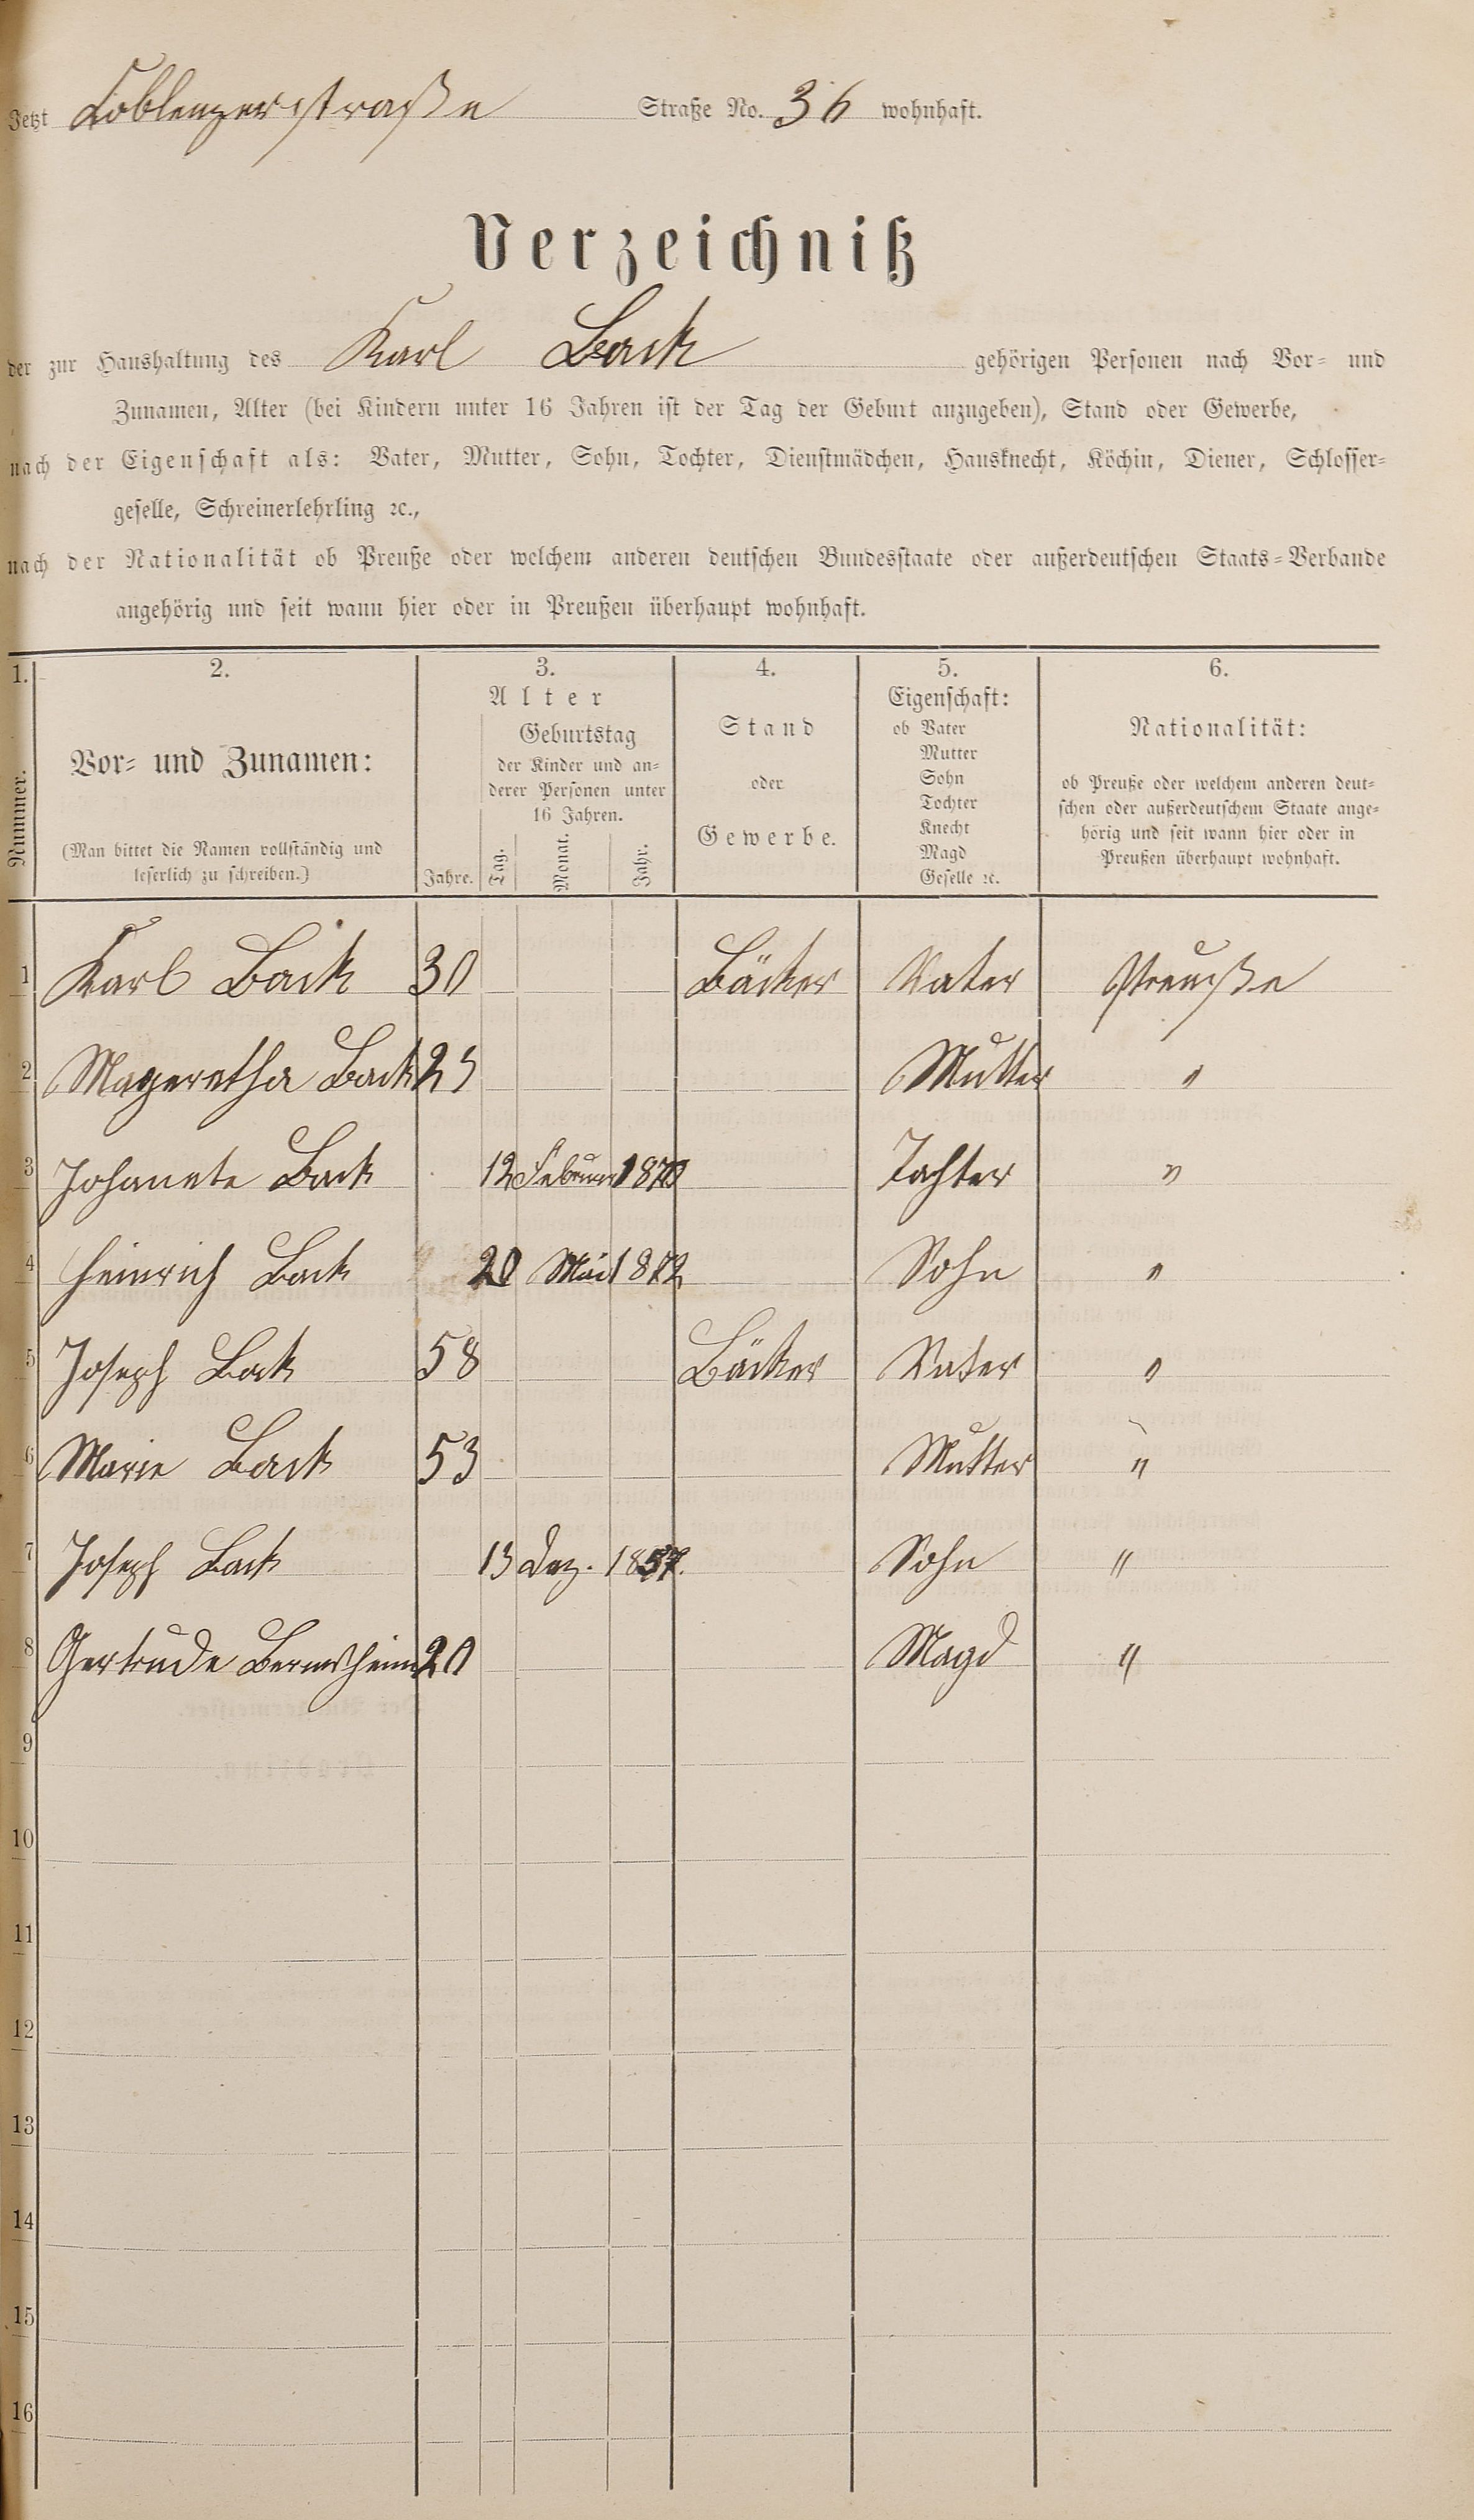 Jetzt Coblenzerstraße Straße No. 36 wohnhaft.
Verzeichniß
der zur Haushaltung des Karl Back gehörigen Personen nach Vor- und
Zunamen, Alter (bei Kindern unter 16 Jahren ist der Tag der Geburt anzugeben), Stand oder Gewerbe,
nach der Eigenschaft als: Vater, Mutter, Sohn, Tochter, Dienstmädchen, Hausknecht, Köchin, Diener, Schlosser-
geselle, Schreinerlehrling ꝛc.,
nach der Nationalität ob Preuße oder welchem anderen deutschen Bundesstaate oder außerdeutschen Staats-Verbande
angehörig und seit wann hier oder in Preußen überhaupt wohnhaft.
1. 2. 3. 4. 5. 6.
Nummer.
Vor- und Zunamen:
(Man bittet die Namen vollständig und
leserlich zu schreiben.)
Alter
Jahre.
Geburtstag
der Kinder und an-
derer Personen unter
16 Jahren.
Tag. Monat. Jahr.
Stand
oder
Gewerbe.
Eigenschaft:
ob Vater
Mutter
Sohn
Tochter
Knecht
Magd
Geselle ꝛc.
Nationalität:
ob Preuße oder welchem anderen deut-
schen oder außerdeutschem Staate ange-
hörig und seit wann hier oder in
Preußen überhaupt wohnhaft.
1 Karl Back 30 Bäcker Vater Preuße
2 Mageretha Back 25 Mutter "
3 Johanete Back 12 Februar Tochter "
4 Heinrich Back 20 Mai 1872 Sohn "
5 Joseph Back 58 Bäcker Vater "
6 Marie Back 53 Mutter "
7 Joseph Back 13 Dez. Sohn "
8 Gertrude 20 Magd "
9
10
11
12
13
14
15
16